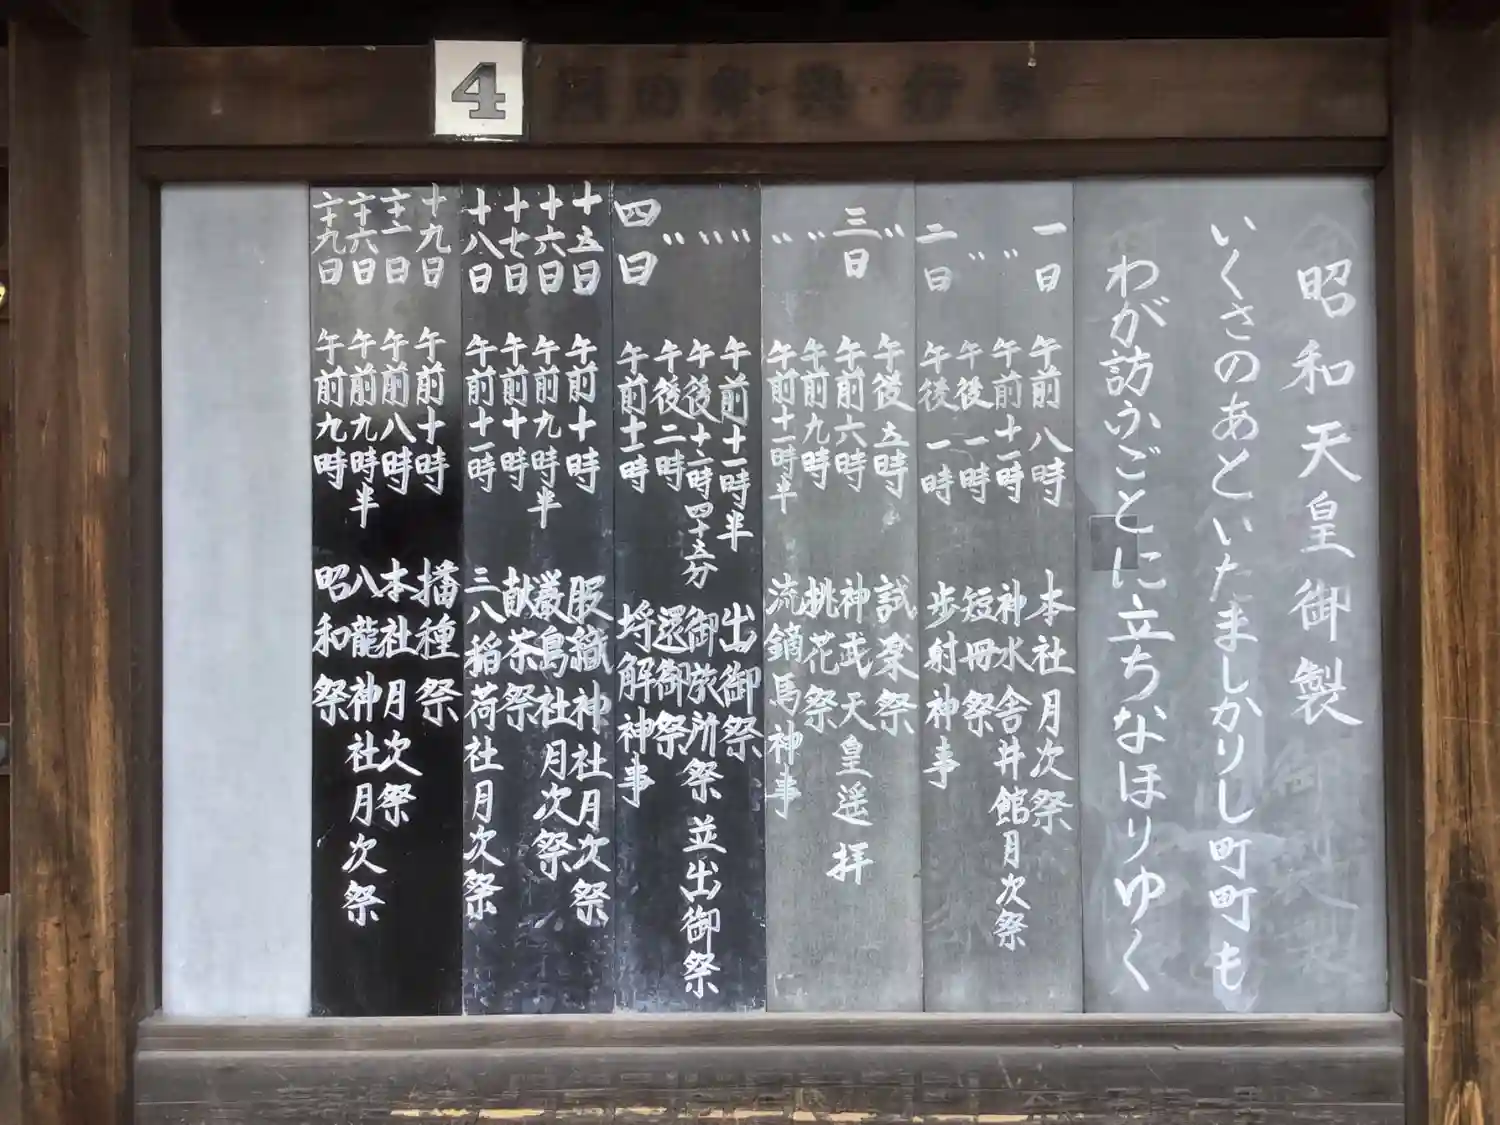 4月の祭・典・行事
昭和天皇御製
いくさのあといたましかりし町町も
わが訪ふごとに立ちなほりゆく
一日 午前八時 本社月次祭
〃 午前十一時 神水舎井館月次祭
〃 午後一時 短冊祭
二日 午後一時 歩射神事
〃 午後五時 試楽祭
三日 午前六時 神武天皇遥拝
〃 午前九時 桃花祭
〃 午前十一時半 流鏑馬神事
〃 午前十一時半 出御祭
〃 午後十二時四十五分 御旅所祭並出御祭
〃 午後二時 還御祭
四日 午前十一時 埒解神事
十五日 午前十時 服織神社月次祭
十六日 午前九時半 厳島社月次祭
十七日 午前十時 献茶祭
十八日 午前十一時 三八稲荷社月次祭
十九日 午前十時 播種祭
二十一日 午前八時 本社月次祭
二十六日 午前九時半 八龍神社月次祭
二十九日 午前九時 昭和祭